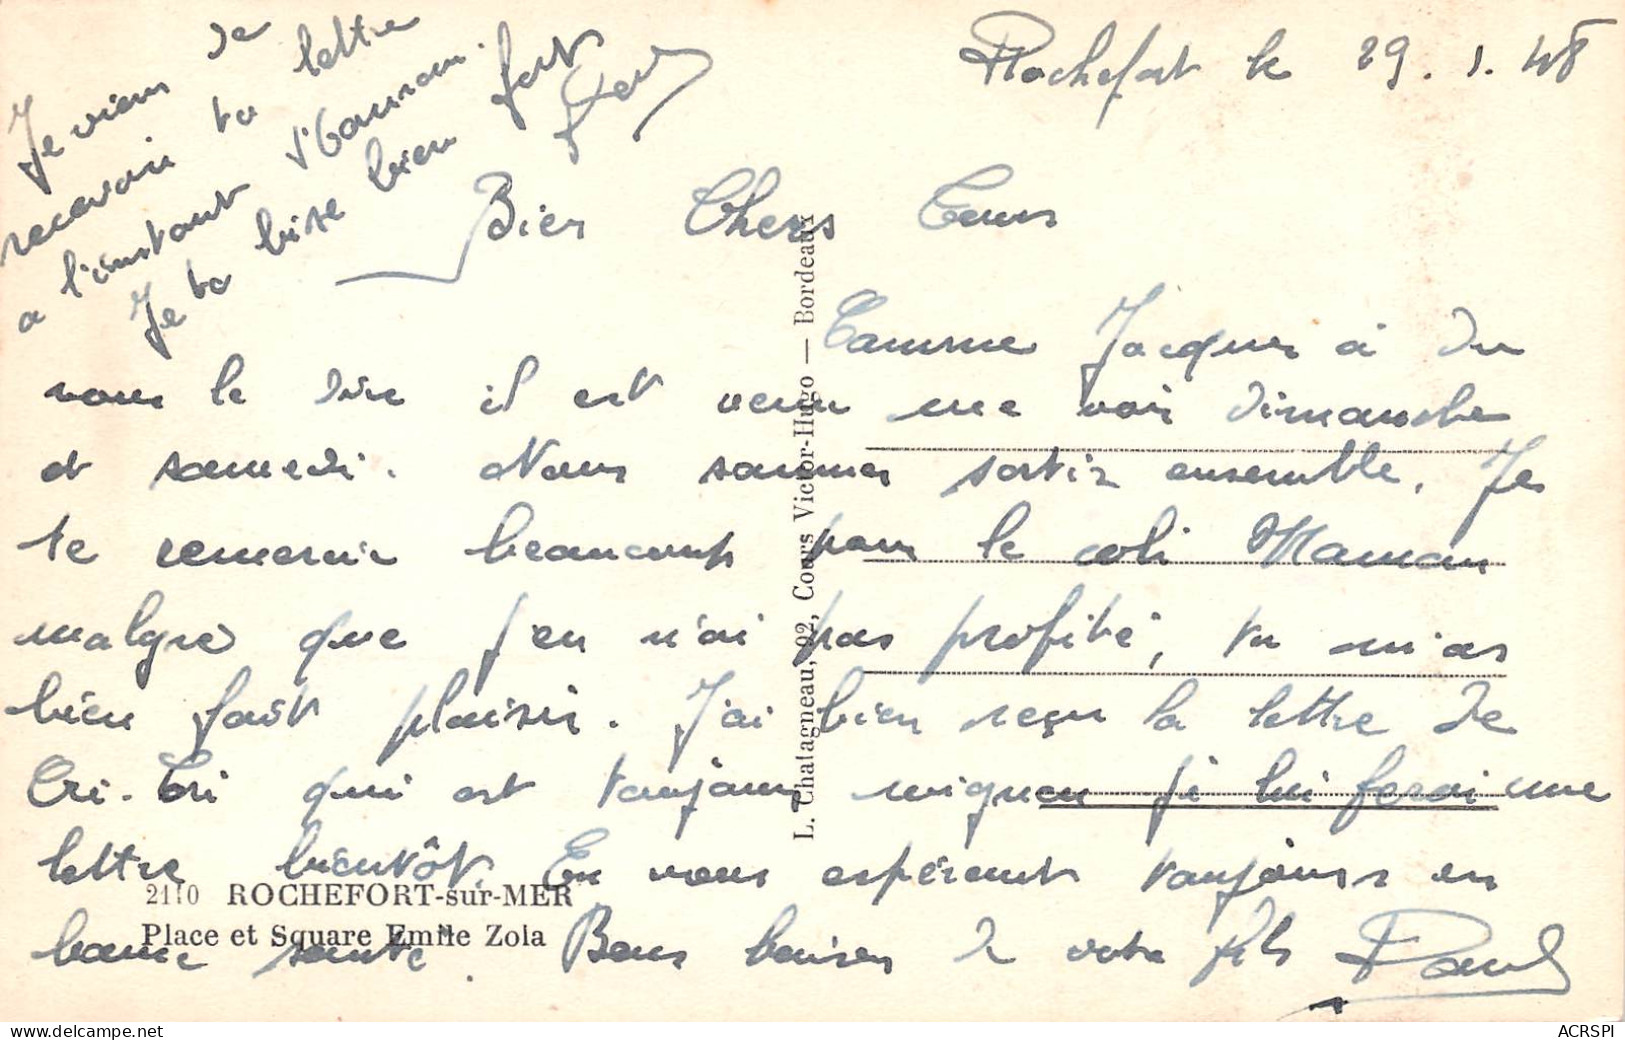 Rochefort le 29.1.48
Je viens de
recevoir ta lettre
a l'instant
Je ta bise bien fort
Paul
Bien Chers Tous
Comme Jacques à du
vous le dire il est venu me voir dimanche
et samedi. Nous sommes sortir ensemble. Je
te remercie beaucoup pour le coli Maman
malgré que j'en n'ai pas profité, tu m'as
bien fait plaisir. J'ai bien reçu la lettre de
Cri-Cri qui est toujours mignon je lui ferai une
lettre bientôt. En vous espérant toujours en
bonne santé. Bons baisers de votre fils Paul
L. Chatagneau, 92, Cours Victor-Hugo — Bordeaux
2110 ROCHEFORT-sur-MER
Place et Square Emile Zola
www.delcampe.net
ACRSPI